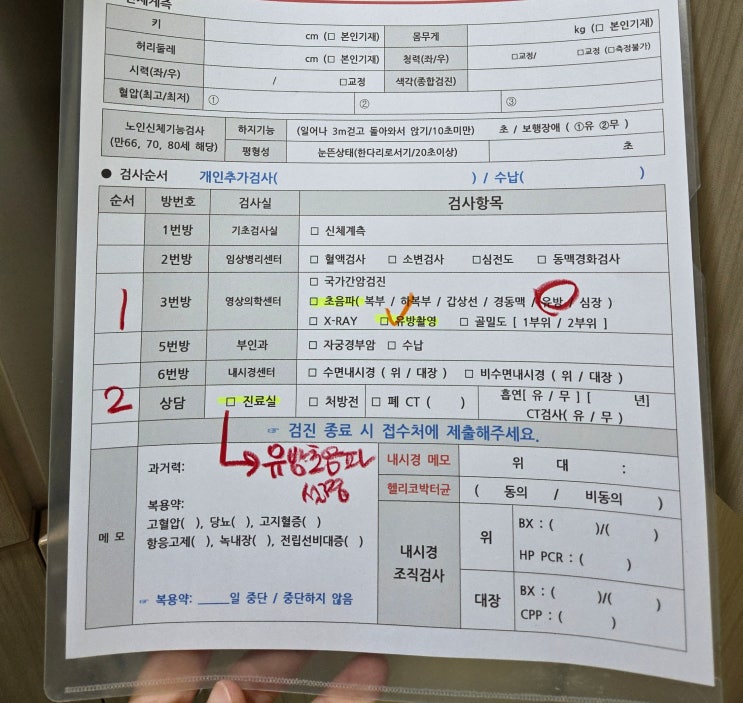 신체계측
키 cm (□ 본인기재) 몸무게 kg (□ 본인기재)
허리둘레 cm (□ 본인기재) 청력(좌/우) □교정/ □교정 (□측정불가)
시력(좌/우) / □교정 색각(종합검진)
혈압(최고/최저) ① ② ③
노인신체기능검사 (만66, 70, 80세 해당)
하지기능 (일어나 3m걷고 돌아와서 앉기/10초미만) 초 / 보행장애 ( ①유 ②무 )
평형성 눈뜬상태(한다리로서기/20초이상) 초
● 검사순서 개인추가검사( ) / 수납( )
순서 방번호 검사실 검사항목
1번방 기초검사실 □ 신체계측
2번방 임상병리센터 □ 혈액검사 □ 소변검사 □심전도 □ 동맥경화검사
1 3번방 영상의학센터 □ 국가간암검진
□ 초음파( 복부 / 하복부 / 갑상선 / 경동맥 / 유방 / 심장 )
□ X-RAY □ 유방촬영 □ 골밀도 [ 1부위 / 2부위 ]
5번방 부인과 □ 자궁경부암 □ 수납
6번방 내시경센터 □ 수면내시경 ( 위 / 대장 ) □ 비수면내시경 ( 위 / 대장 )
2 상담 □ 진료실 □ 처방전 □ 폐 CT ( ) 흡연[ 유 / 무 ] [ 년]
CT검사( 유 / 무 )
☞ 검진 종료 시 접수처에 제출해주세요.
메 모
과거력:
유방초음파
설명
복용약:
고혈압( ), 당뇨( ), 고지혈증( )
항응고제( ), 녹내장( ), 전립선비대증( )
☞ 복용약: _____일 중단 / 중단하지 않음
내시경 메모 위 대 :
헬리코박터균 ( 동의 / 비동의 )
내시경 조직검사
위 BX : ( )/( )
HP PCR : ( )
대장 BX : ( )/( )
CPP : ( )